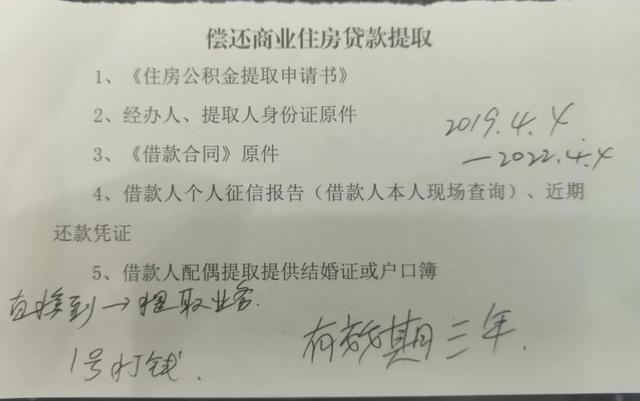 偿还商业住房贷款提取
1、《住房公积金提取申请书》
2、经办人、提取人身份证原件
2019.4.4
3、《借款合同》原件
—2022.4.4
4、借款人个人征信报告（借款人本人现场查询）、近期
还款凭证
5、借款人配偶提取提供结婚证或户口簿
直接到→提取业务.
有效期三年.
1号打钱.